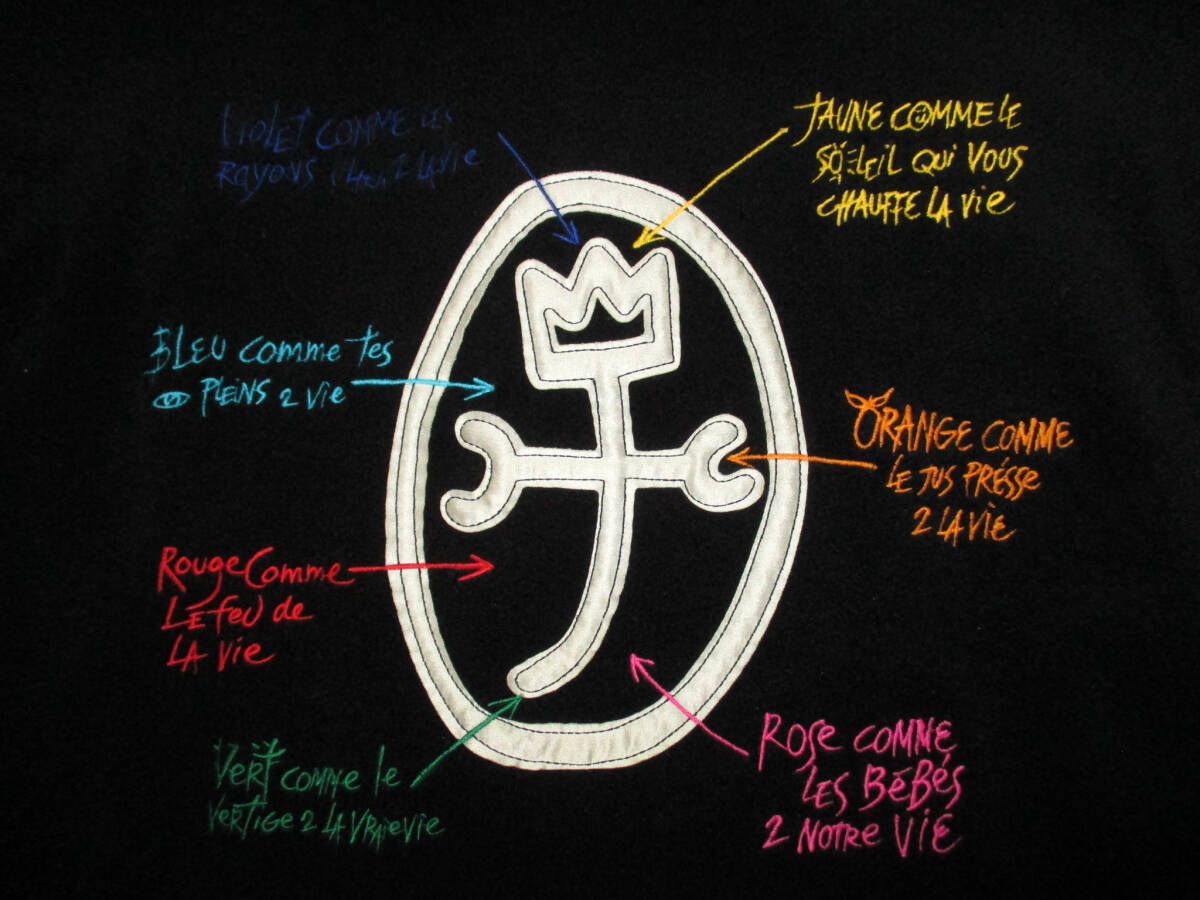 VIOLET COMME LES
RAYONS 2 LA VIE
JAUNE COMME LE
SOLEIL QUI VOUS
CHAUFFE LA Vie
BLEU comme tes
PLEINS 2 Vie
ORANGE COMME
LE JUS PRÉSSE
2 LA ViE
Rouge Comme
LE feu de
LA Vie
VERT COMME le
VERTIGE 2 LA VRAIE VIE
ROSE COMME
LES BéBéS
2 NOTRE VIE